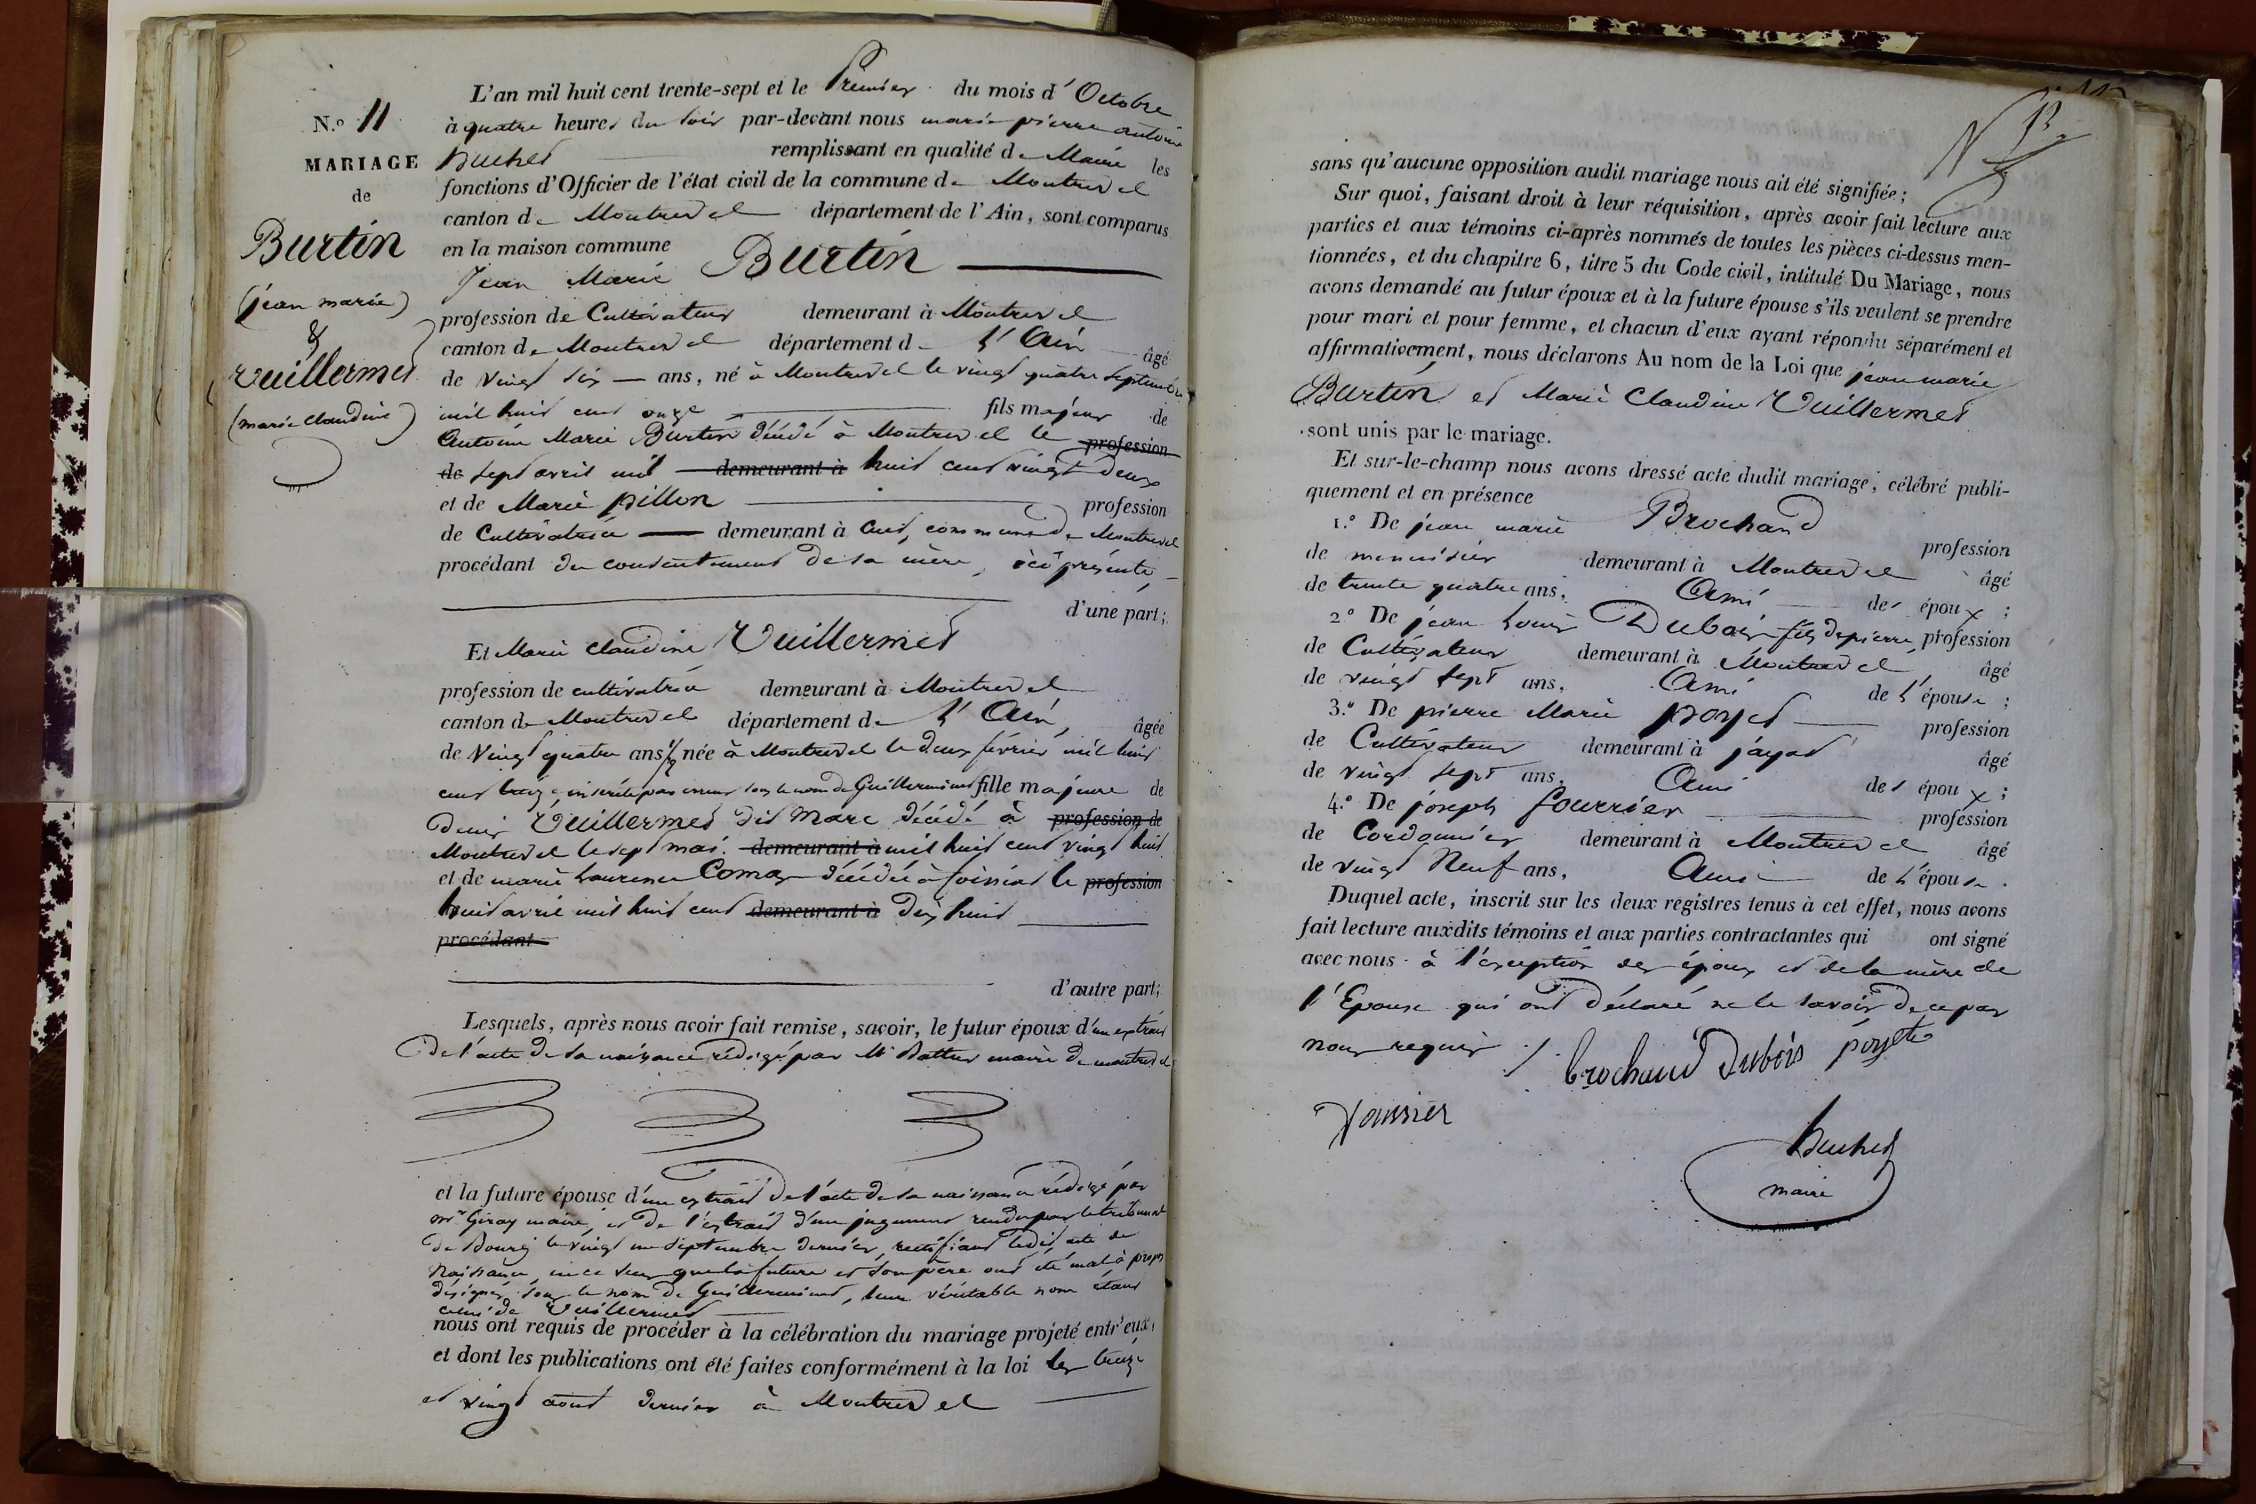 N.º 11
MARIAGE
de
Burtin
(jean marie)
&
Vuillermet
(marie claudine)
L'an mil huit cent trente-sept et le Premier du mois d'Octobre
à quatre heures du soir par-devant nous marie pierre antoine
remplissant en qualité de Maire les
fonctions d'Officier de l'état civil de la commune de Montrevel
canton de Montrevel département de l'Ain, sont comparus
en la maison commune
Jean Marie Burtin
profession de Cultivateur demeurant à Montrevel
canton de Montrevel département de L'Ain âgé
de vingt six ans, né à Montrevel le vingt quatre septembre
mil huit cent onze fils majeur de
Antoine Marie Burtin décédé à Montrevel le profession
de sept avril mil demeurant à huit cent vingt deux
et de Marie pillon profession
de Cultivatrice demeurant à Cuet, commune de Montrevel
procédant du consentement de sa mère, ici présente
d'une part;
Et Marie claudine Vuillermet
profession de cultivatrice demeurant à Montrevel
canton de Montrevel département de L'Ain, âgée
de vingt quatre ans née à Montrevel le deux février mil huit
cent treize, inscrite par erreur sous le nom de Guillerminet fille majeure de
Denis Vuillermet dit Marc décédé à profession de
Montrevel le sept mai demeurant à mil huit cent vingt huit
et de marie Laurence Comas décédée à foissiat le profession
huit avril mil huit cent demeurant à dix huit
procédant
d'autre part;
Lesquels, après nous avoir fait remise, savoir, le futur époux d'un extrait
de l'acte de sa naissance rédigé par Mr maire de montrevel
et la future épouse d'un extrait de l'acte de sa naissance rédigé par
mr. Giray maire, et de l'extrait d'un jugement rendu par le tribunal
de Bourg le vingt un septembre dernier, rectifiant ledit acte de
naissance, en ce sens que la future et son père ont été mal à propos
désignés sous le nom de Guillerminet, leur véritable nom étant
celui de Vuillermet
nous ont requis de procéder à la célébration du mariage projeté entr'eux,
et dont les publications ont été faites conformément à la loi les treize
et vingt août dernier à Montrevel
sans qu'aucune opposition audit mariage nous ait été signifiée;
Sur quoi, faisant droit à leur réquisition, après avoir fait lecture aux
parties et aux témoins ci-après nommés de toutes les pièces ci-dessus men-
tionnées, et du chapitre 6, titre 5 du Code civil, intitulé Du Mariage, nous
avons demandé au futur époux et à la future épouse s'ils veulent se prendre
pour mari et pour femme, et chacun d'eux ayant répondu séparément et
affirmativement, nous déclarons Au nom de la Loi que jean marie
Burtin et Marie Claudine Vuillermet
sont unis par le mariage.
Et sur-le-champ nous avons dressé acte dudit mariage, célébré publi-
quement et en présence
1.º De jean marie Brochand profession
de menuisier demeurant à Montrevel âgé
de trente quatre ans, Ami des époux;
2.º De jean Louis Dubois fils de pierre, profession
de Cultivateur demeurant à Montrevel âgé
de vingt sept ans, Ami de L'épouse;
3.º De pierre Marie poyet profession
de Cultivateur demeurant à jayat âgé
de vingt sept ans, Ami des époux;
4.º De joseph fourrier profession
de Cordonnier demeurant à Montrevel âgé
de vingt Neuf ans, Ami de L'épouse.
Duquel acte, inscrit sur les deux registres tenus à cet effet, nous avons
fait lecture auxdits témoins et aux parties contractantes qui ont signé
avec nous à l'exception des époux et de la mère de
l'Epouse qui ont déclaré ne le savoir de ce par
nous requis
brochand Dubois poyet
maire